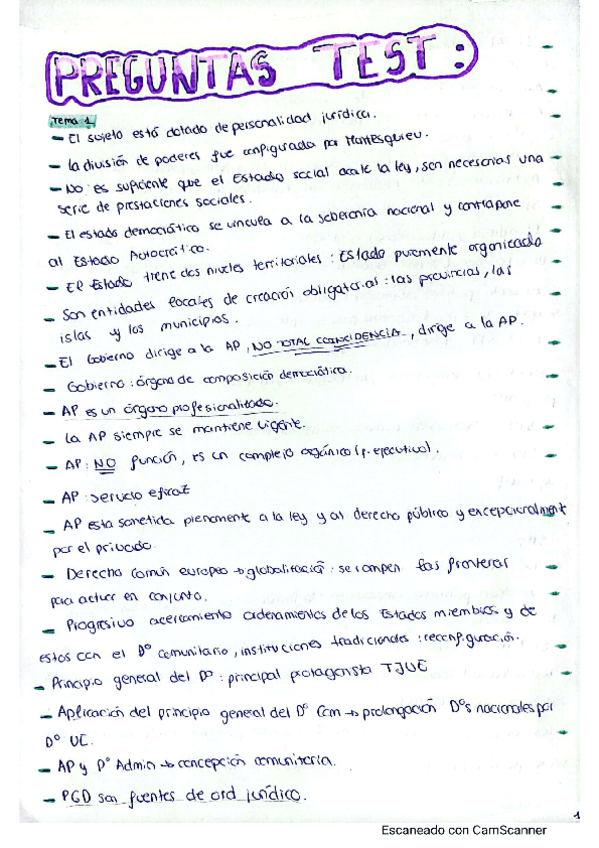 PREGUNTAS TEST:
Tema 1
- El sujeto está dotado de personalidad jurídica.
- La división de poderes fue configurada por Montesquieu.
- No es suficiente que el Estado social acate la ley, son necesarias una
serie de prestaciones sociales.
- El estado democrático se vincula a la soberanía nacional y contrapone
al Estado Autocrático.
- El Estado tiene dos niveles territoriales: Estado puramente organizado
- Son entidades locales de creación obligatorias: las provincias, las
islas y los municipios.
- El Gobierno dirige a la AP, NO TOTAL COINCIDENCIA, dirige a la AP.
- Gobierno: órgano de composición democrática.
- AP es un órgano profesionalizado.
- La AP siempre se mantiene vigente.
- AP: NO función, es un complejo orgánico (p. ejecutivo).
- AP: servicio eficaz
- AP esta sometida plenamente a la ley y al derecho público y excepcionalment
por el privado.
- Derecho común europeo → globalización: se rompen las fronteras
para actuar en conjunto.
- Progresivo acercamiento ordenamientos de los Estados miembros y de
estos con el Dº comunitario, instituciones tradicionales: reconfiguración.
- Principio general del Dº: principal protagonista TJUE
- Aplicación del principio general del Dº Com → prolongación Dºs nacionales por
Dº UE.
- AP y Dº Admin → concepción comunitaria.
- PGD son fuentes de ord jurídico.
1
Escaneado con CamScanner